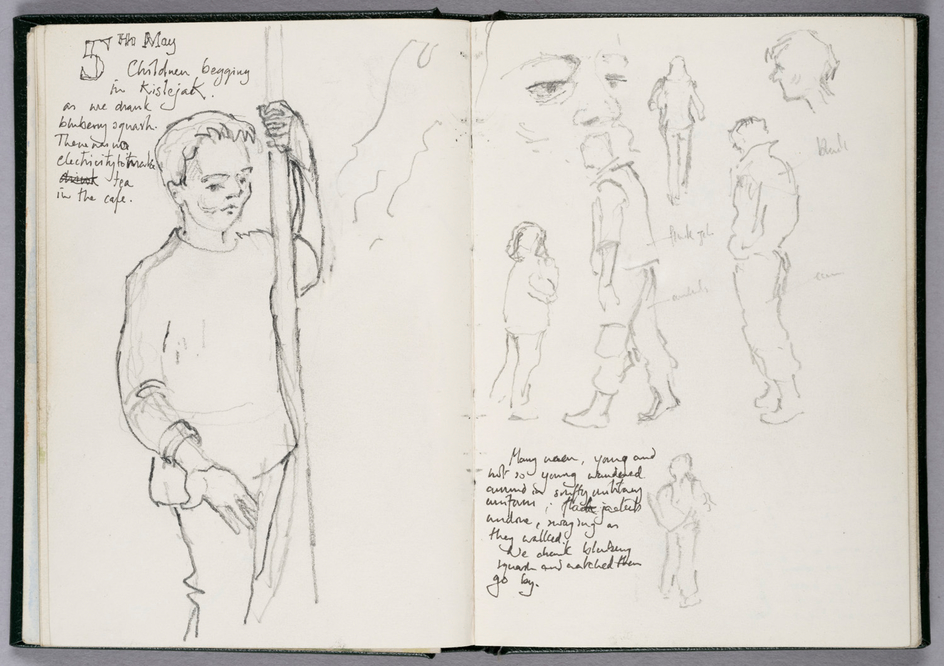 5 th May
Children begging
in Kislejak.
as we drank
bluberry squash.
There was no
electricity to make
tea
in the cafe.
Many men, young and
not so young wandered
around in scruffy military
uniform; jackets
undone, swaying as
they walked.
We drank bluberry
squash and watched them
go by.